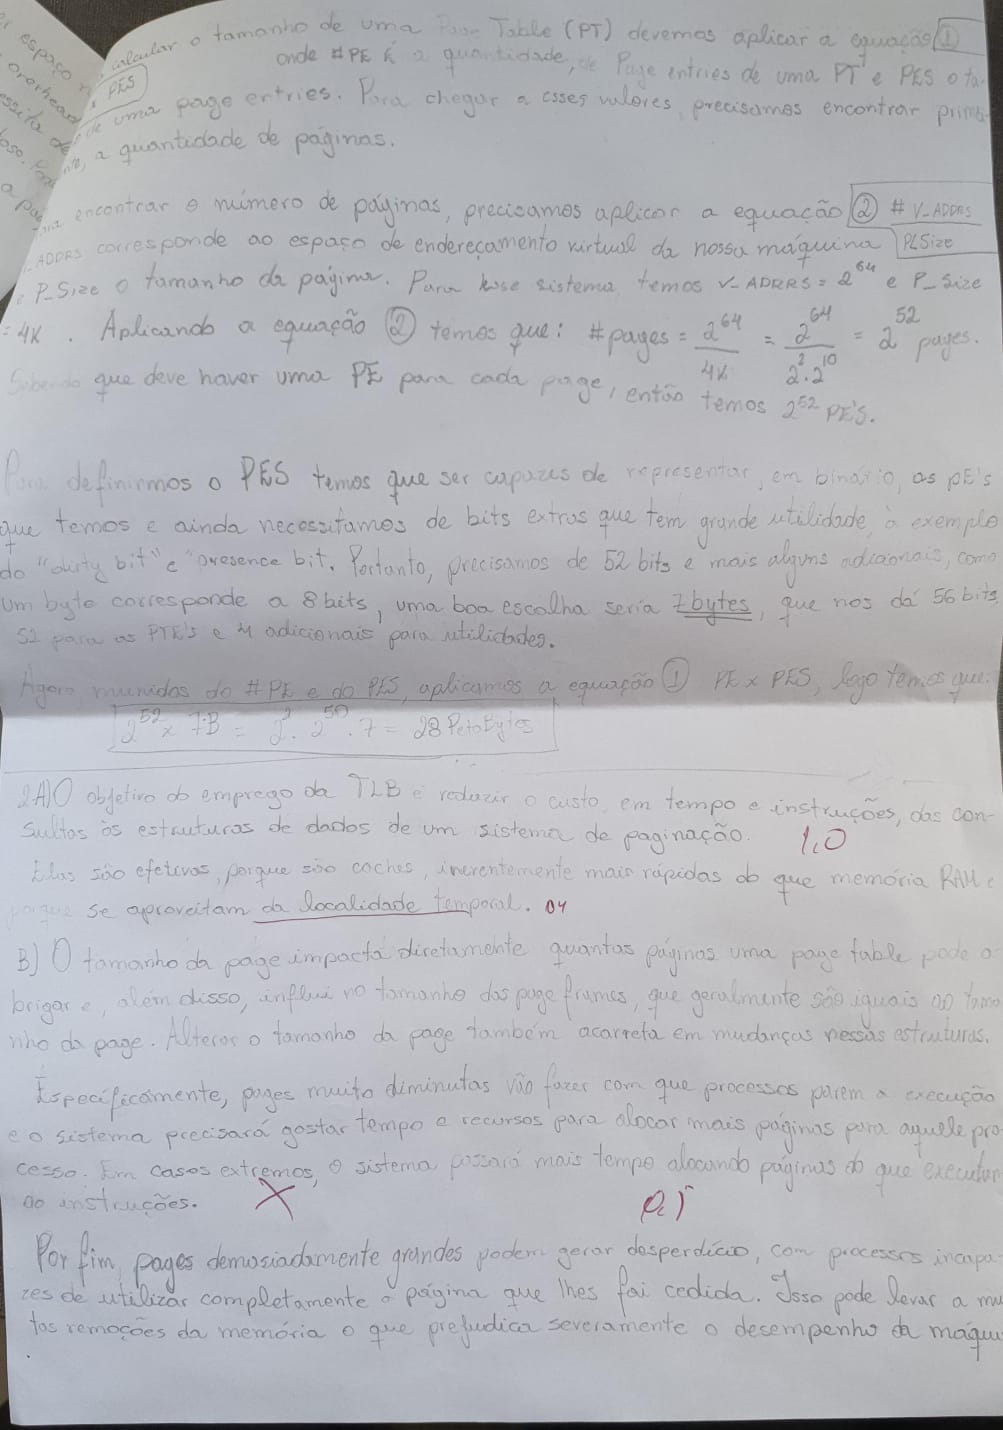 espaço
overhead
calcular o tamanho de uma Page Table (PT) devemos aplicar a equação ①
PES onde #PE é a quantidade, de Page entries de uma PT e PES o ta-
de uma page entries. Para chegar a esses valores, precisamos encontrar prime-
a quantidade de páginas.
encontrar o número de páginas, precisamos aplicar a equação ② # V_ADDRS
P_Size
ADDRS corresponde ao espaço de endereçamento virtual da nossa máquina
e P_Size o tamanho da página. Para sistema temos V_ADDRS = 2^64 e P_Size
= 4K. Aplicando a equação ② temos que: #pages = 2^64/4K = 2^64/2^2.2^10 = 2^52 pages.
Sabendo que deve haver uma PE para cada page, então temos 2^52 PE'S.
Para definirmos o PES temos que ser capazes de representar, em binário, as PE's
que temos e ainda necessitamos de bits extras que tem grande utilidade, a exemplo
do "dirty bit" e "presence bit. Portanto, precisamos de 52 bits e mais alguns adicionais, como
um byte corresponde a 8 bits, uma boa escolha seria 7 bytes, que nos dá 56 bits,
52 para as PTE's e 4 adicionais para utilidades.
Agora munidos do #PE e do PES, aplicamos a equação ① PE x PES, logo temos que:
2^52 x 7.B = 2^2 . 2^50 . 7 = 28 PetaBytes
2A) O objetivo do emprego da TLB é reduzir o custo, em tempo e instruções, das con-
sultas às estruturas de dados de um sistema de paginação. 1,0
Elas são efetivas, porque são caches, inerentemente mais rápidas do que memória RAM e
porque se aproveitam da localidade temporal. 04
B) O tamanho da page impacta diretamente quantas páginas uma page table pode a
brigar e, além disso, influi no tamanho dos page frames, que geralmente são iguais ao tama
nho da page. Alterar o tamanho da page também acarreta em mudanças nessas estruturas.
Especificamente, pages muito diminutas vão fazer com que processos parem a execução
e o sistema precisará gastar tempo e recursos para alocar mais páginas para aquele pro
cesso. Em casos extremos, o sistema passará mais tempo alocando páginas do que executan
do instruções. X 0,5
Por fim, pages demasiadamente grandes podem gerar desperdício, com processos incapa-
zes de utilizar completamente a página que lhes foi cedida. Isso pode levar a mui
tas remoções da memória o que prejudica severamente o desempenho da máqui